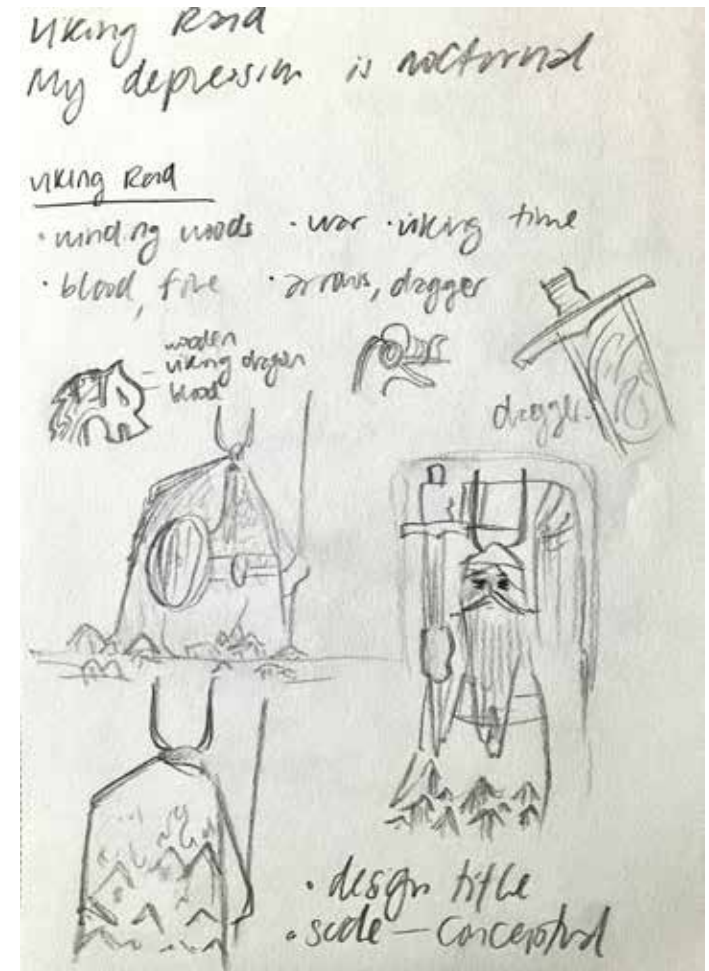 Viking Raid
My depression is nocturnal
Viking Raid
• winding woods • war • viking time
• blood, fire • arrows, dagger
wooden
viking dragon
blood
dagger
• design title
• scale — conceptual